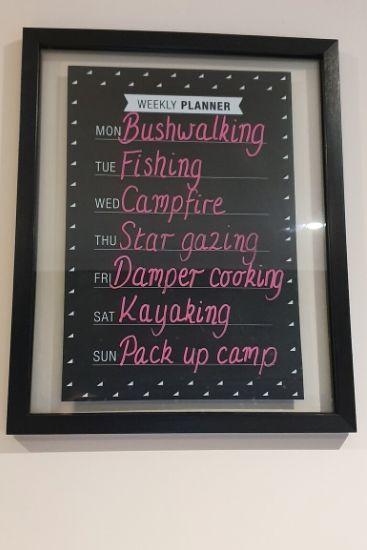 WEEKLY PLANNER
MON Bushwalking
TUE Fishing
WED Campfire
THU Star gazing
FRI Damper cooking
SAT Kayaking
SUN Pack up camp